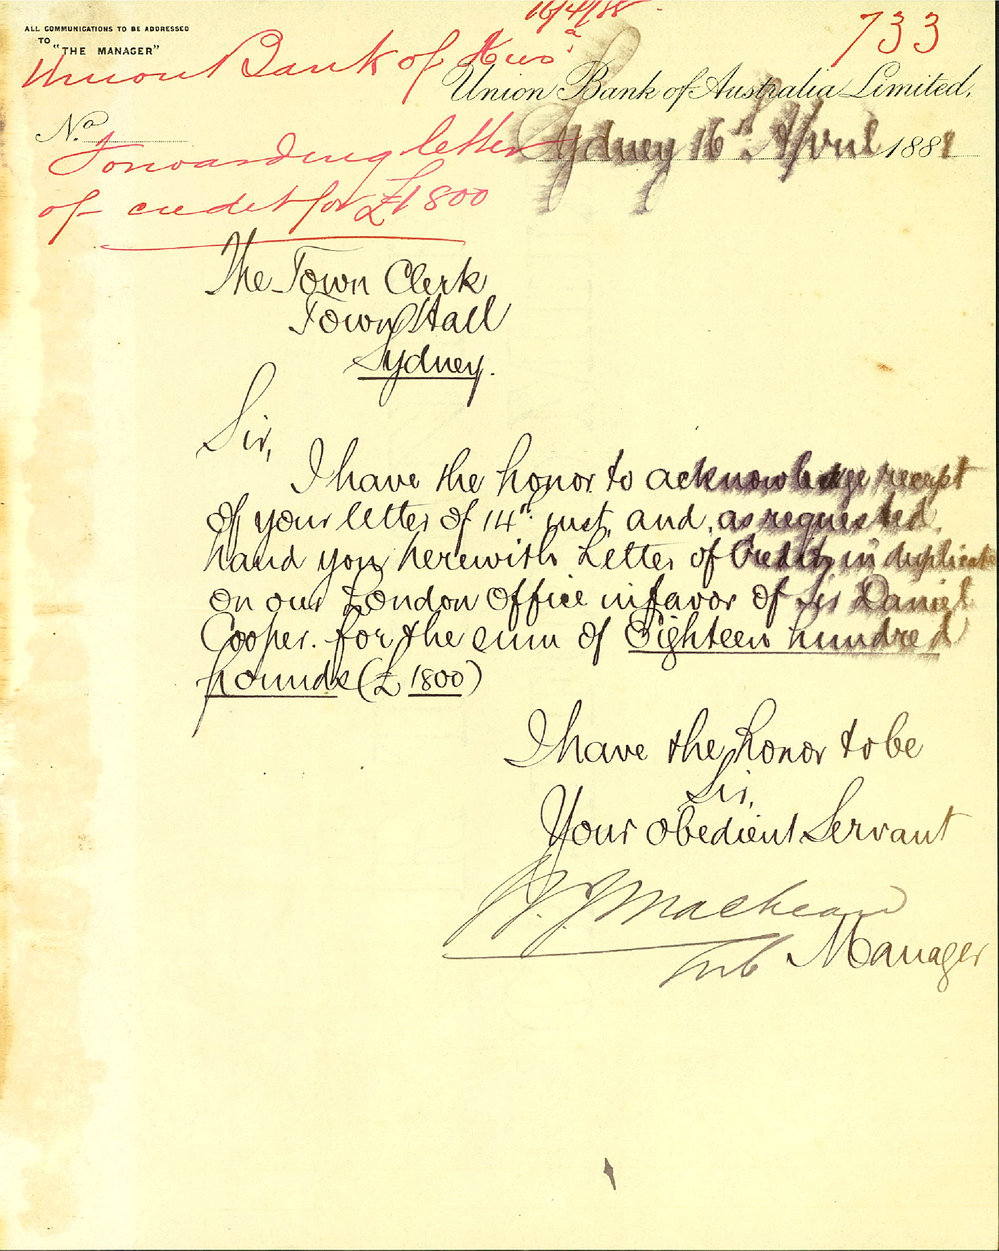 16/4/88
733
ALL COMMUNICATIONS TO BE ADDRESSED
TO
"THE MANAGER"
Union Bank of Aus^a
Union Bank of Australia Limited.
No.
Sydney 16th April 1888
Forwarding letter
of credit for £1800
The Town Clerk
Town Hall
Sydney.
Sir,
I have the honor to acknowledge receipt
of your letter of 14th inst. and, as requested,
hand you herewith Letter of Credit, in duplicate
on our London Office in favor of Sir Daniel
Cooper. for the sum of Eighteen hundred
pounds (£1800)
I have the honor to be
Sir,
Your obedient Servant
Sub Manager